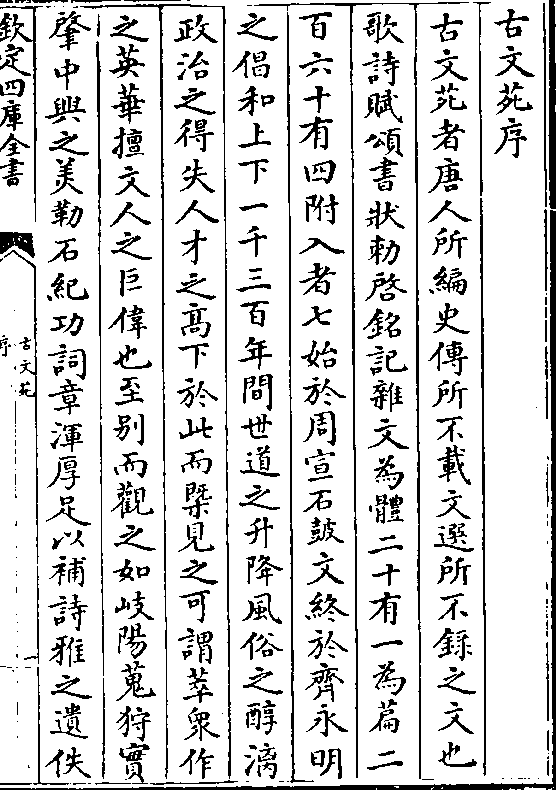 古文苑序
古文苑者唐人所編史傳所不載文選所不錄之文也
歌詩賦頌書狀勅啓銘記雜文為體二十有一為篇二
百六十有四附入者七始於周宣石鼓文終於齊永明
之倡和上下一千三百年間世道之升降風俗之醇漓
政治之得失人才之髙下於此而槩見之可謂萃衆作
之英華擅文人之巨偉也至别而觀之如岐陽蒐狩實
肇中興之美勒石紀功詞章渾厚足以補詩雅之遺佚
欽定四庫全書
古文苑
序
一